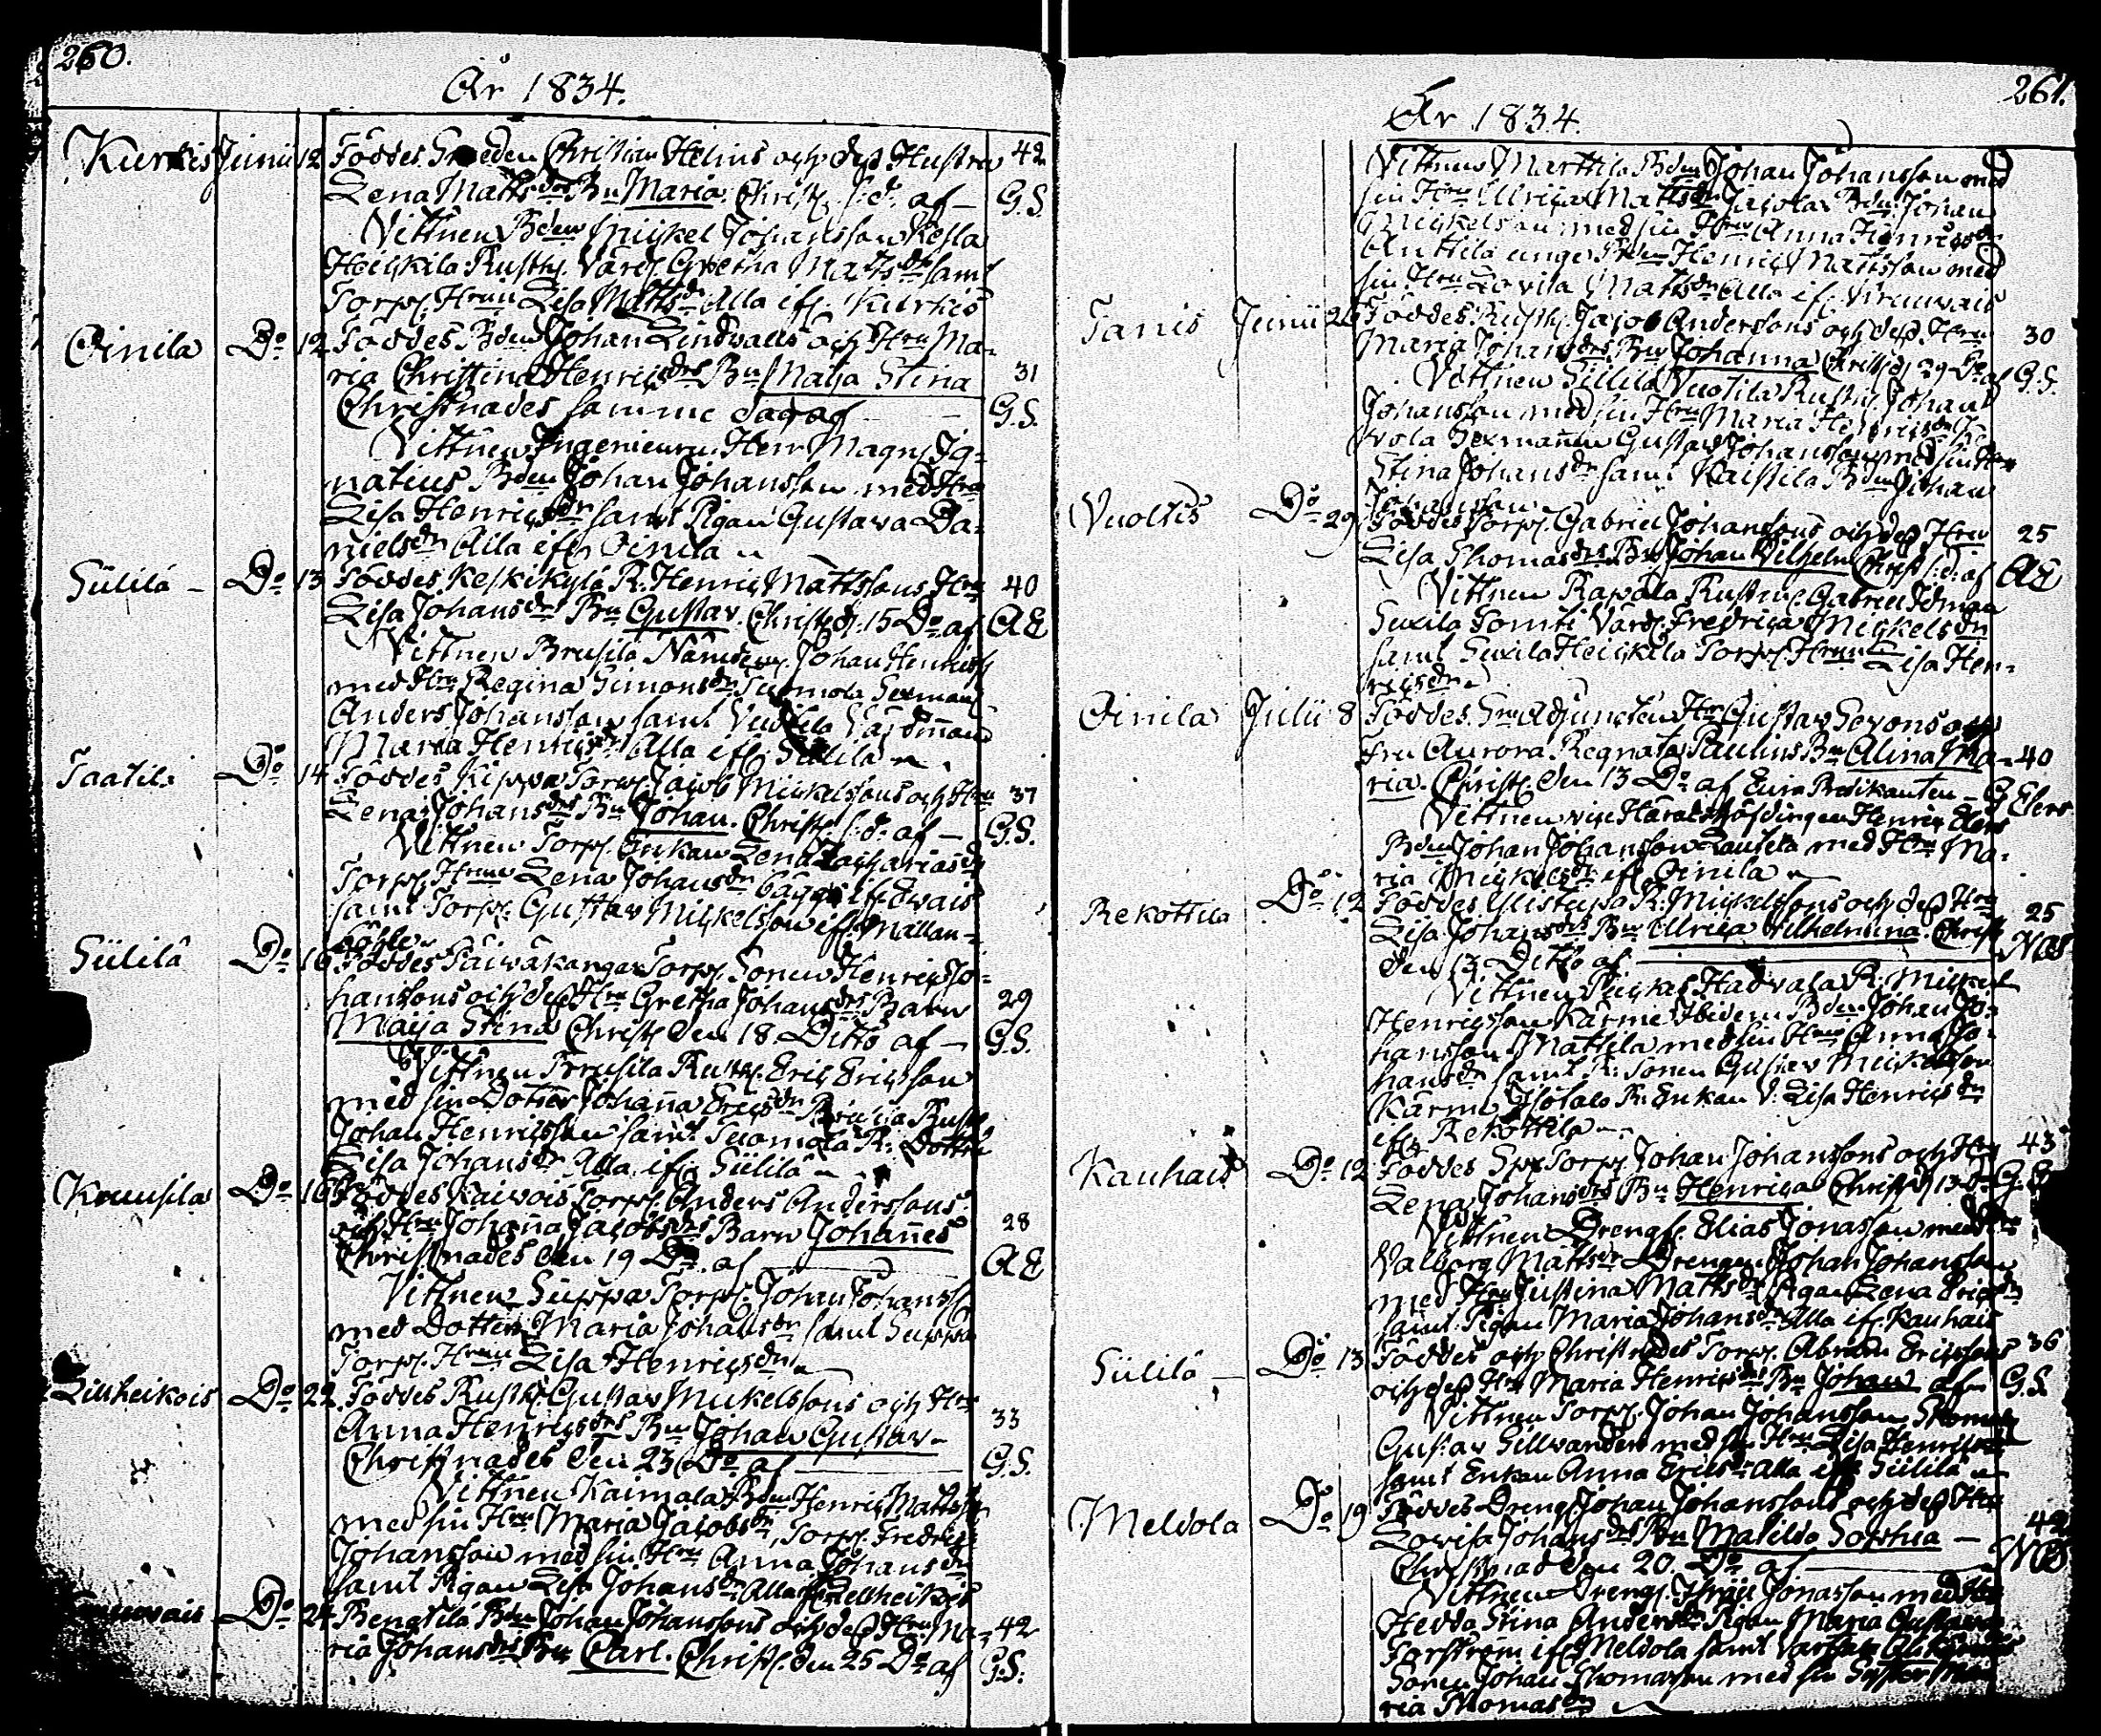 260.
År 1834.
Kurkis Junii 12 Föddes Smeden Christian Helins och dess Hustru 42
Lena Mattsdrs Bn Maria. Christ. s:d: af – G.S.
Vittnen Bden Mickel Johansson Kesla
Heickilä Rusth. Vard. Gretha Mattsdr samt
Torp. Hrun Lisa Mattsdr Alla ifr. Kurkis
Oinila Do 12 Föddes Bden Johan Lindvalls och Hru Ma-
ria Christina Henricsdrs Bn Maija Stina 31
Christnades samme dag af – G.S.
Vittnen Ingenieuren Herr Magn. Ig-
natius Bden Johan Johansson med Hru
Lisa Henricsdr samt Pigan Gustava Da-
nielsdr Alla ifr. Oinila
Siililä – Do 13 Föddes Keskikylä R. Henric Mattssons Hru 40
Lisa Johansdrs Bn Gustav. Christ. d. 15 Do af AE
Vittnen Brusila Nämdem. Johan Henricss.
med Hru Regina Simonsdr Suomola Sexman
Anders Johansson samt Vuotila Vard. mann
Maria Henricsdr Alla ifr. Siililä
Taatila Do 14 Föddes Kippa Torp. Jacob Mickelssons och Hru 37
Lena Johansdrs Bn Johan. Christ. s:d: af – G.S.
Vittnen Torp. Enkan Lena Zachariasdr
Torp. Hrun Lena Johansdr bägge ifr. Evais
samt Torp. Gustav Mickelsson ifr. Mallan-
köhle
Siililä Do 16 Föddes Päiväkangas Torp. Sonen Henric Jo-
hanssons och dess Hru Gretha Johansdrs Barn 29
Maija Stina Christ. den 18 Ditto af – G.S.
Vittnen Brusila Rusth. Eric Ericsson
med sin Dotter Johanna Ericsdr Rusth.
Johan Henricsson samt Suomola R. Dottr.
Lisa Johansdr Alla ifr. Siililä
Kruusila Do 16 Föddes Kaivois Torp. Anders Anderssons
och Hru Johanna Jacobsdrs Barn Johannes 28
Christnades den 19 Do. af AE
Vittnen Suppa Torp. Johan Johanss.
med Dottern Maria Johansdr samt Suppa
Torp. Hrun Lisa Henricsdr
Lillheikois Do 22 Föddes Rusth. Gustav Mickelssons och Hru 33
Anna Henricsdrs Bn Johan Gustav –
Christnades den 23 Do af G.S.
Vittnen Kaimala Bden Henric Mattss.
med sin Hru Maria Jacobsdr, Torp. Fredric
Johansson med sin Hru Anna Johansdr
samt Pigan Lisa Johansdr Alla ifr. Lillheikois
Do 24 Bengtilä Bden Johan Johanssons och dess Hru Ma- 42
ria Johansdrs Bn Carl. Christ. den 25 Do af G.S.
261.
År 1834.
Vittnen Marttila Bden Johan Johansson med
sin Hru Ulrica Mattsdr Jacola Bden Johan
Mickelsson med sin Hru Anna Henricsdr
Anttila unge Bden Henric Mattsson med
sin Hru Lovisa Mattsdr Alla ifr.
Tanis Junii 26 Föddes Rusth. Jacob Anderssons och dess Hru 30
Maria Johansdrs Bn Johanna Christ. d. 29 Do af G.S.
Vittnen Siililä Vuotila Rusth. Johan
Johansson med sin Hru Maria Henricsdr
Sexmannen Gustav Johansson med sin Hru
Stina Johansdr samt Kaistila Bden Johan
Johansson
Vuoltis Do 29 Föddes Torp. Gabriel Johanssons och dess Hru 25
Lisa Thomasdrs Bn Johan Vilhelm Christ. s:d: af AE
Vittnen Rapola Rusth. Gabriel Idman
Suxila Tomti Vard. Fredrica Mickelsdr
samt Suxila Heickilä Torp. Hrun Lisa Hen-
ricsdr
Oinila Julii 8 Föddes. Adjuncten Hr Gustav Sexons och
Fru Aurora Regnata Paulins Bn Alina Ma- 40
ria. Christ. den 13 Do af Eura Predikanten – G Elers
Vittnen vice Häradshöfdingen Henric Elers
Bden Johan Johansson Lautila med Hru Ma-
ria Mickelsdr ifr. Oinila
Rekottila Do 12 Föddes Ylistupa R. Mickelssons och dess Hru 25
Lisa Johansdrs Bn Ulrica Vilhelmina. Christ.
den 13 Ditto af
Vittnen Hadvala R. Mickel
Henricsson Kärme Ibidem Bden Johan Jo-
hansson Mattila med sin Hru Anna Jo-
hansdr samt R: Sonen Gustav Mickelsson
Kärme Isotalo R. Enkan V: Lisa Henricsdr
ifr. Rekottila
Kauhais Do 12 Föddes Torp. Johan Johanssons och Hru 43
Lena Johansdrs Bn Henrica Christ. d. 13 Do
Vittnen Drengs. Elias Jonasson med Hru
Valborg Mattsdr Drengen Johan Johansson
med Hru Justina Mattsdr Pigan Lena Ericsdr
samt Pigan Maria Johansdr Alla ifr. Kauhais
Siililä – Do 13 Föddes och Christnades Torp. Abram Ericssons 36
och dess Hru Maria Henricsdrs Bn Johan af G.S.
Vittnen Torp. Johan Johansson
Gustav Sillvander med sin Hru Lisa Henricsdr
samt Enkan Anna Ericsdr Alla ifr. Siililä
Meldola Do 19 Föddes Dreng. Johan Johanssons och dess Hru 42
Lovisa Johansdrs Bn Matilda Sophia –
Christnad den 20. Do af
Vittnen Dreng. Jonasson med Hru
Hedda Stina Andersdr Pigan Maria Gustava
Torström ifr. Meldola samt
Sonen Johan Thomasson med sin Syster Ma-
ria Thomasdr